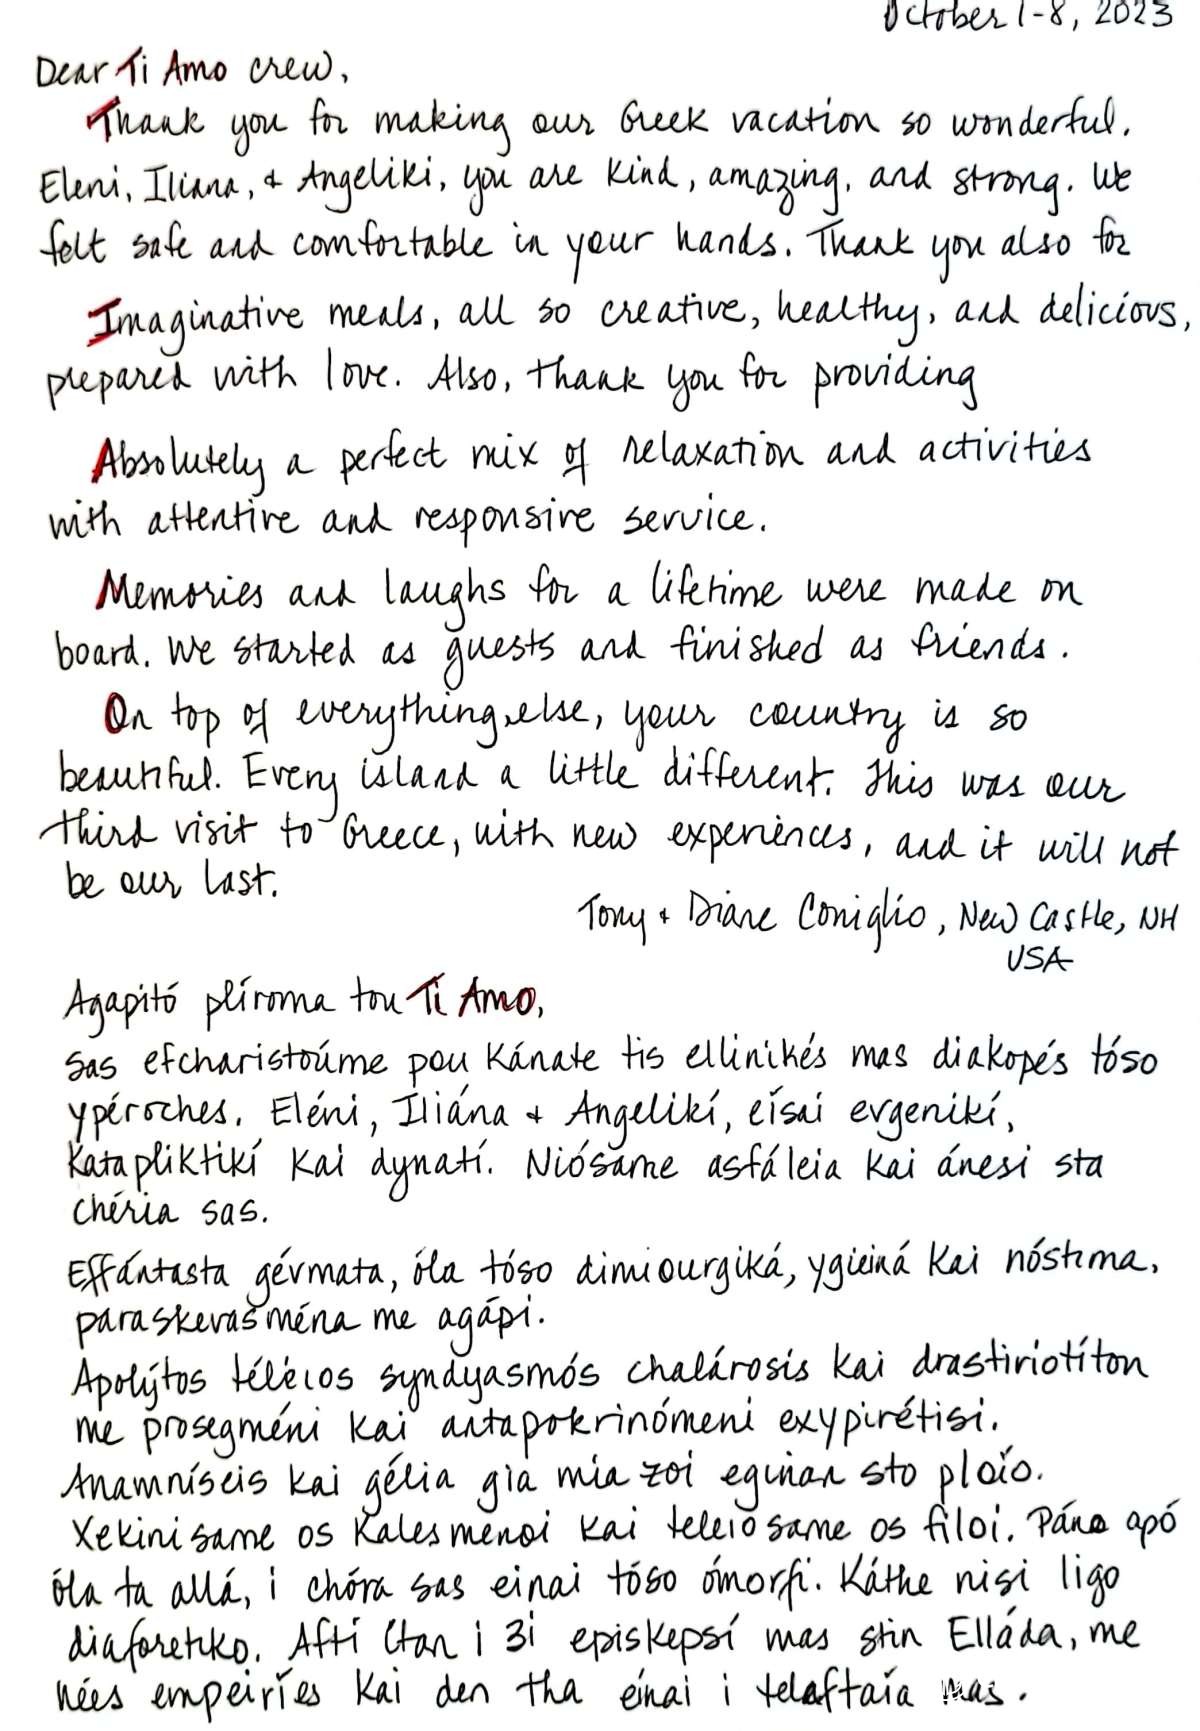 October 1-8, 2023
Dear Ti Amo crew,
Thank you for making our Greek vacation so wonderful.
Eleni, Iliana, & Angeliki, you are kind, amazing, and strong. We
felt safe and comfortable in your hands. Thank you also for
Imaginative meals, all so creative, healthy, and delicious,
prepared with love. Also, thank you for providing
Absolutely a perfect mix of relaxation and activities
with attentive and responsive service.
Memories and laughs for a lifetime were made on
board. We started as guests and finished as friends.
On top of everything else, your country is so
beautiful. Every island a little different. This was our
third visit to Greece, with new experiences, and it will not
be our last.
Tony & Diane Coniglio, New Castle, NH
USA
Agapitó plíroma tou Ti Amo,
Sas efcharistoúme pou kánate tis ellinikés mas diakopés tóso
ypéroches. Eléni, Iliána & Angelikí, eísai evgenikí,
Katapliktikí kai dynatí. Niósame asfáleia kai ánesi sta
chéria sas.
Effántasta gévmata, óla tóso dimiourgiká, ygieiná kai nóstima,
paraskevasména me agápi.
Apolýtos téleios syndyasmós chalárosis kai drastiriotíton
me prosegméni kai antapokrinómeni exypirétisi.
Anamníseis kai gélia gia mia zoi eginan sto ploío.
Xekinisame os kalesmenoi kai teleiosame os filoi. Páno apó
óla ta allá, i chóra sas einai tóso ómorfi. Káthe nisi ligo
diaforetiko. Aftí ítan i 3i episkepsí mas stin Elláda, me
nées empeiríes kai den tha eínai i telaftaía mas.